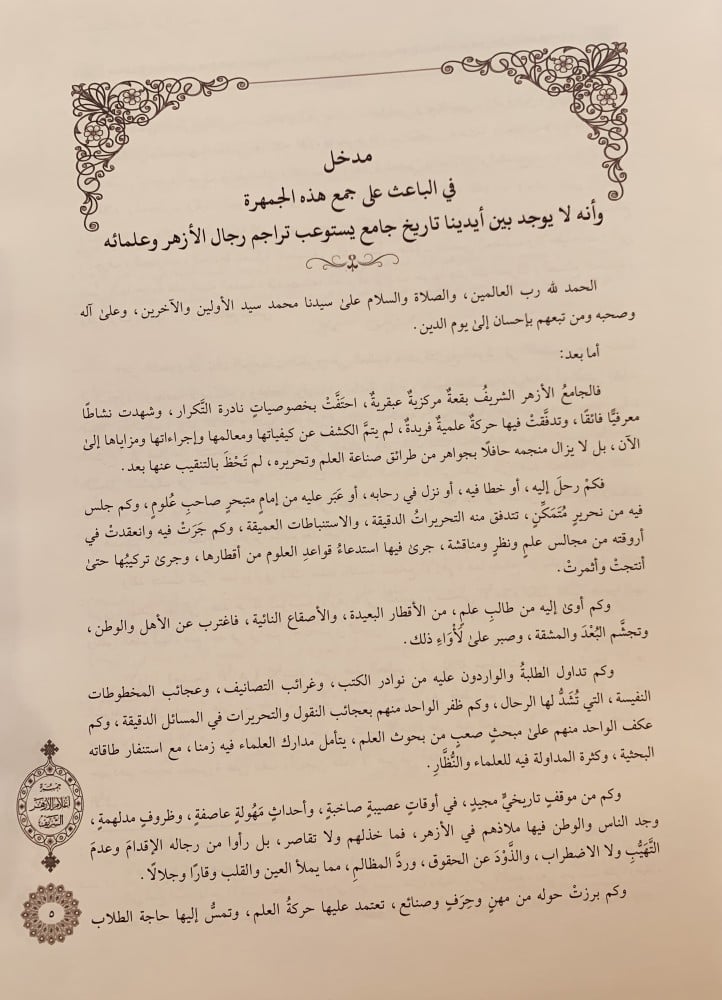 مدخل
في الباعث على جمع هذه الجمهرة
وأنه لا يوجد بين أيدينا تاريخ جامع يستوعب تراجم رجال الأزهر وعلمائه
الحمد لله رب العالمين، والصلاة والسلام علىٰ سيدنا محمد سيد الأولين والآخرين، وعلىٰ آله
وصحبه ومن تبعهم بإحسان إلىٰ يوم الدين.
أما بعد:
فالجامعُ الأزهر الشريفُ بقعةٌ مركزيةٌ عبقريةٌ، احتَفَّتْ بخصوصياتٍ نادرة التَّكرار، وشهدت نشاطًا
معرفيًّا فائقًا، وتدفَّقتْ فيها حركةٌ علميةٌ فريدةٌ، لم يتمَّ الكشف عن كيفياتها ومعالمها وإجراءاتها ومزاياها إلىٰ
الآن، بل لا يزال منجمه حافلًا بجواهر من طرائق صناعة العلم وتحريره، لم تَحْظَ بالتنقيب عنها بعد.
فكمْ رحلَ إليه، أو خطا فيه، أو نزل في رحابه، أو عَبَر عليه من إمامٍ متبحرٍ صاحبِ عُلومٍ، وكم جلس
فيه من نحريرٍ مُتَمَكِّنٍ، تتدفق منه التحريراتُ الدقيقة، والاستنباطات العميقة، وكم جَرَتْ فيه وانعقدتْ في
أروقته من مجالس علمٍ ونظرٍ ومناقشة، جرىٰ فيها استدعاءُ قواعدِ العلوم من أقطارها، وجرىٰ تركيبُها حتىٰ
أنتجتْ وأثمرتْ.
وكم أوىٰ إليه من طالبِ علمٍ، من الأقطار البعيدة، والأصقاع النائية، فاغترب عن الأهل والوطن،
وتجشَّم البُعْدَ والمشقة، وصبر علىٰ لَأْوَاءِ ذلك.
وكم تداول الطلبةُ والواردون عليه من نوادر الكتب، وغرائب التصانيف، وعجائب المخطوطات
النفيسة، التي تُشَدُّ لها الرحال، وكم ظفر الواحد منهم بعجائب النقول والتحريرات في المسائل الدقيقة، وكم
عكف الواحد منهم علىٰ مبحثٍ صعبٍ من بحوث العلم، يتأمل مدارك العلماء فيه زمنا، مع استنفار طاقاته
البحثية، وكثرة المداولة فيه للعلماء والنُّظَّارِ.
وكم من موقفٍ تاريخيٍّ مجيدٍ، في أوقاتٍ عصيبةٍ صاخبةٍ، وأحداثٍ مَهُولةٍ عاصفةٍ، وظروفٍ مدلهمةٍ،
وجد الناس والوطن فيها ملاذهم في الأزهر، فما خذلهم ولا تقاصر، بل رأوا من رجاله الإقدامَ وعدمَ
التَّهَيُّبِ ولا الاضطراب، والذَّوْدَ عن الحقوق، وردَّ المظالمِ، مما يملأ العين والقلب وقارًا وجلالًا.
وكم برزتْ حوله من مهنٍ وحِرَفٍ وصنائع، تعتمد عليها حركةُ العلم، وتمسُّ إليها حاجة الطلاب
جمهرة
أعلام الأزهر
الشريف
٥